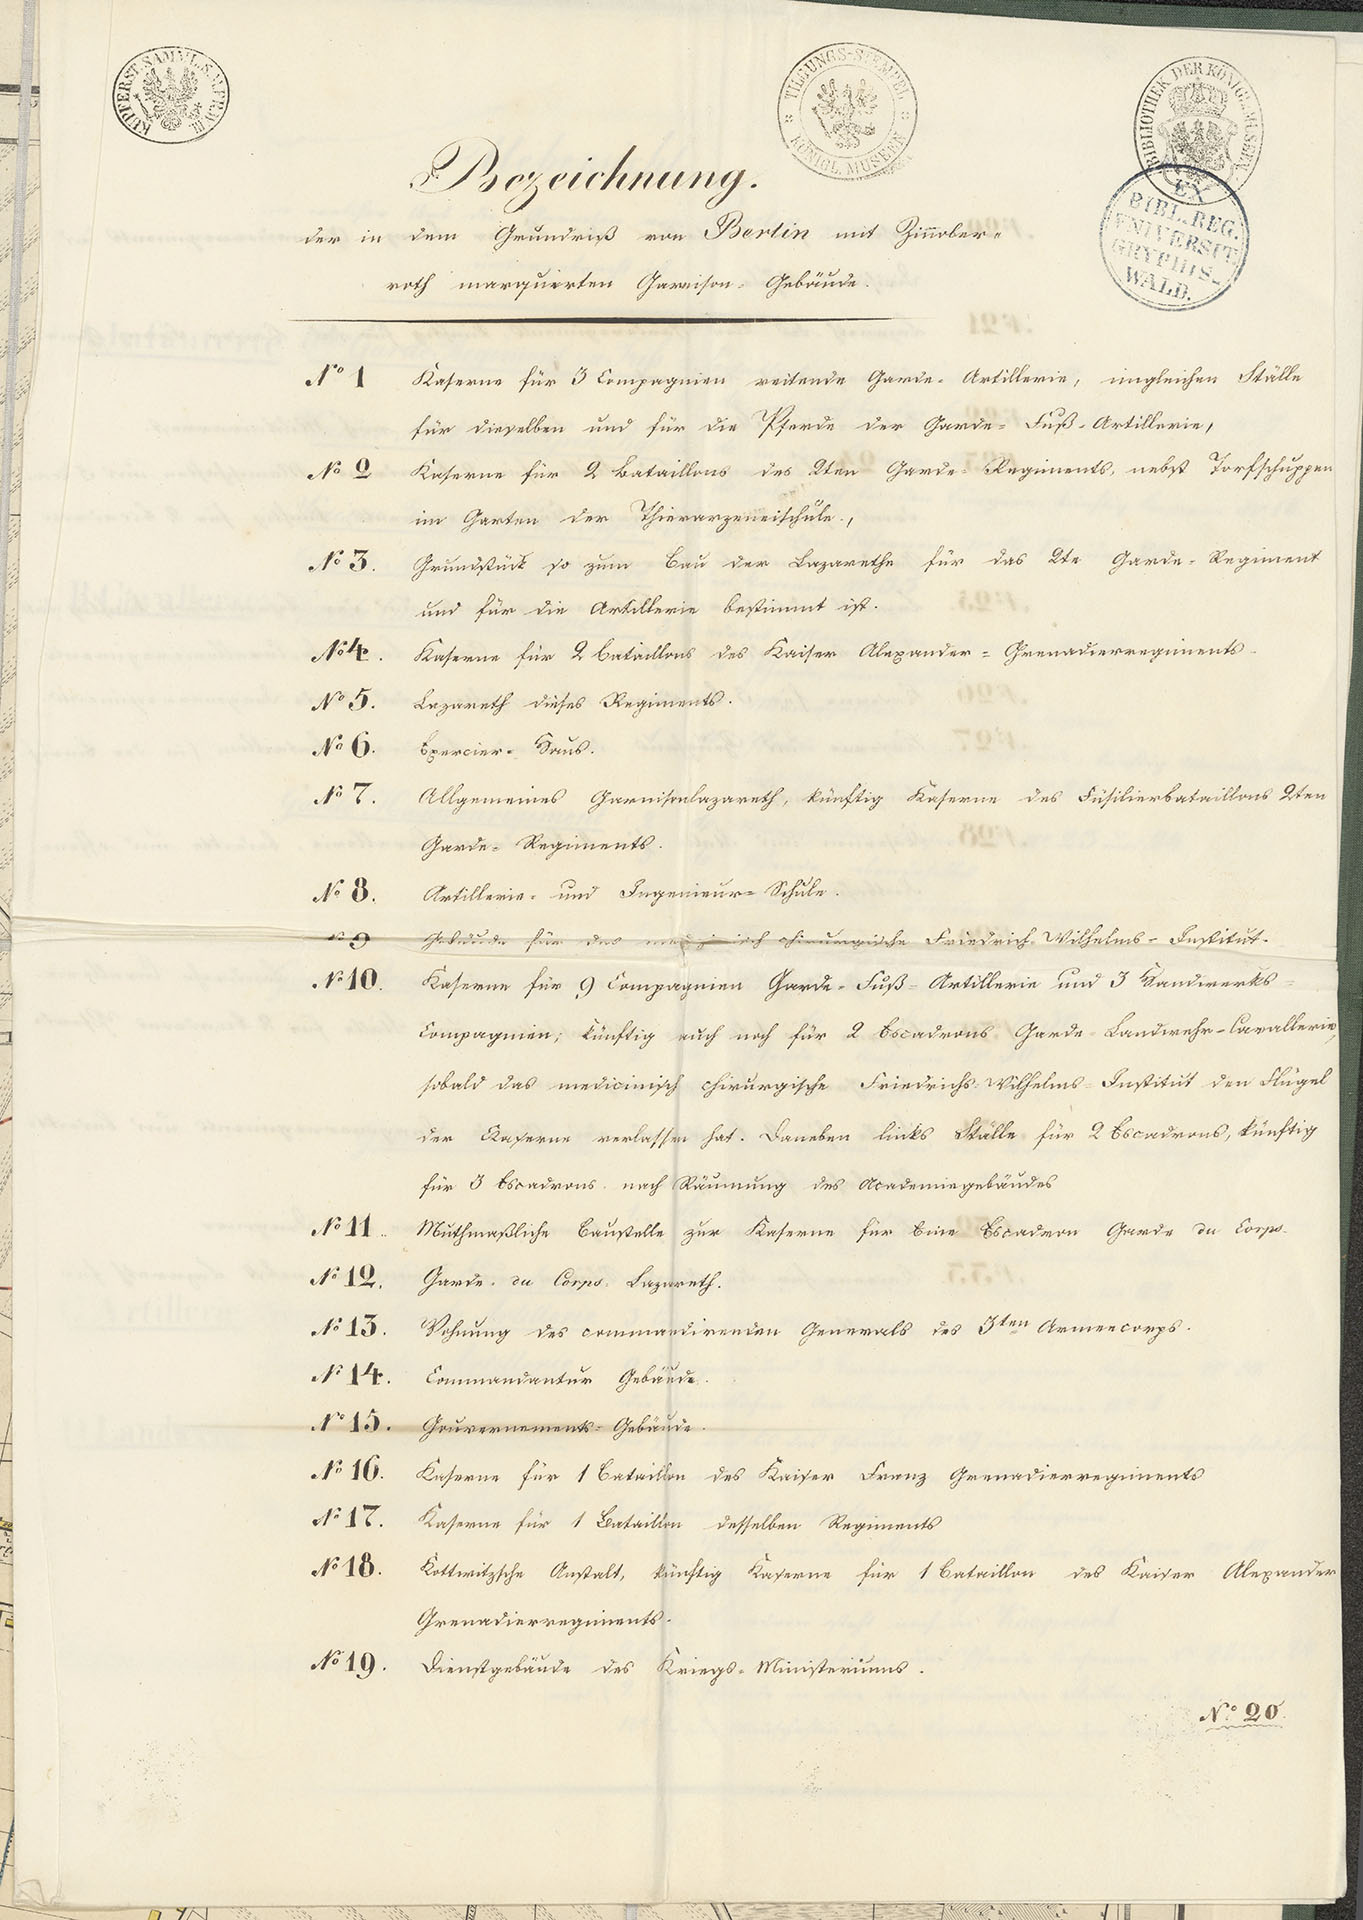 KUPFERST. SAMML. K. FR. W. III
TILGUNGS-STEMPEL KÖNIGL. MUSEEN
BIBLIOTHEK DER KÖNIGL. MUSEEN
EX
BIBL. REG.
UNIVERSIT.
GRYPHIS-
WALD.
Bezeichnung.
der in dem Grundriß von Berlin mit Zinnober-
roth marquirten Garnison-Gebäude.
No 1 Kaserne für 3 Compagnien reitende Garde-Artillerie, imgleichen Ställe
für dieselben und für die Pferde der Garde-Fuß-Artillerie,
No 2 Kaserne für 2 Bataillons des 2ten Garde-Regiments, nebst Torfschuppen
im Garten der Thierarzeneischule.,
No 3. Grundstück so zum Bau der Lazarethe für das 2te Garde-Regiment
und für die Artillerie bestimmt ist.
No 4. Kaserne für 2 Bataillons des Kaiser Alexander-Grenadierregiments.
No 5. Lazareth dieses Regiments.
No 6. Exercier-Haus.
No 7. Allgemeines Garnisonlazareth, künftig Kaserne des Füsilierbataillons 2ten
Garde-Regiments.
No 8. Artillerie- und Ingenieur-Schule.
No 9 Gebäude für das medizinisch chirurgische Friedrich-Wilhelms-Institut.
No 10. Kaserne für 9 Compagnien Garde-Fuß-Artillerie und 3 Handwerks-
Compagnien; künftig auch noch für 2 Escadrons Garde-Landwehr-Cavallerie,
sobald das medicinisch chirurgische Friedrichs-Wilhelms-Institut den Flügel
der Kaserne verlassen hat. Daneben links Ställe für 2 Escadrons, künftig
für 3 Escadrons nach Räumung des Academiegebäudes
No 11. Muthmaßliche Baustelle zur Kaserne für Eine Escadron Garde du Corps.
No 12. Garde du Corps Lazareth.
No 13. Wohnung des commandirenden Generals des 3ten Armeecorps.
No 14. Commandantur Gebäude.
No 15. Gouvernements-Gebäude.
No 16. Kaserne für 1 Bataillon des Kaiser Franz Grenadierregiments
No 17. Kaserne für 1 Bataillon desselben Regiments
No 18. Kottwitzsche Anstalt, künftig Kaserne für 1 Bataillon des Kaiser Alexander
Grenadierregiments.
No 19. Dienstgebäude des Kriegs-Ministeriums.
No 20